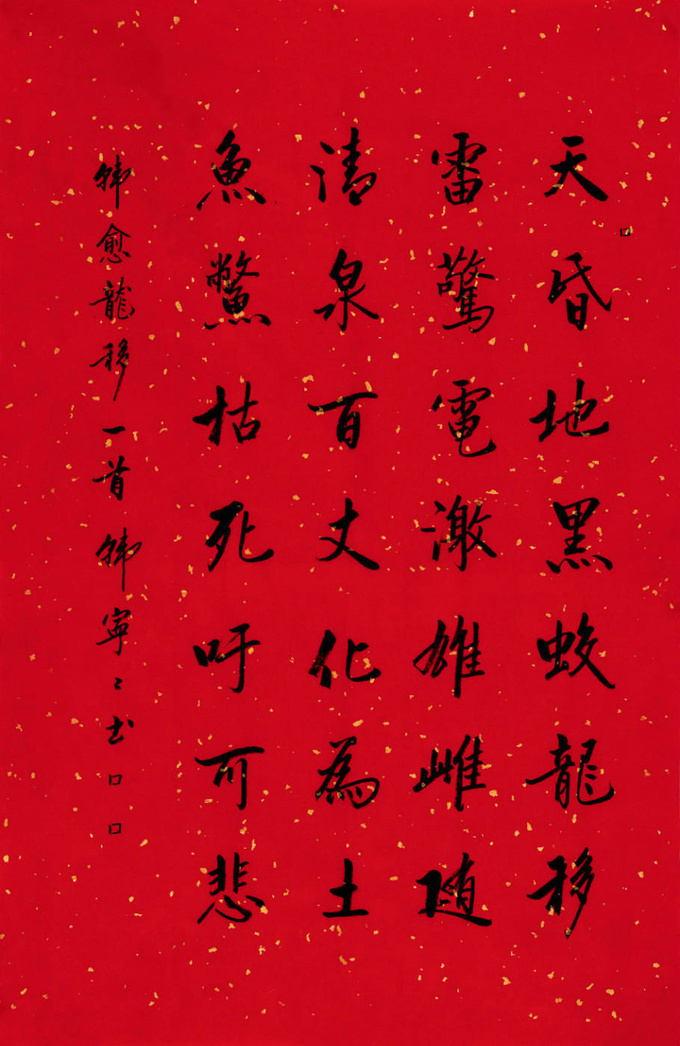 天昏地黑蛟龍移
雷驚電激雄雌随
清泉百丈化為土
魚鱉枯死吁可悲
韩愈龍移一首韩寧〻书